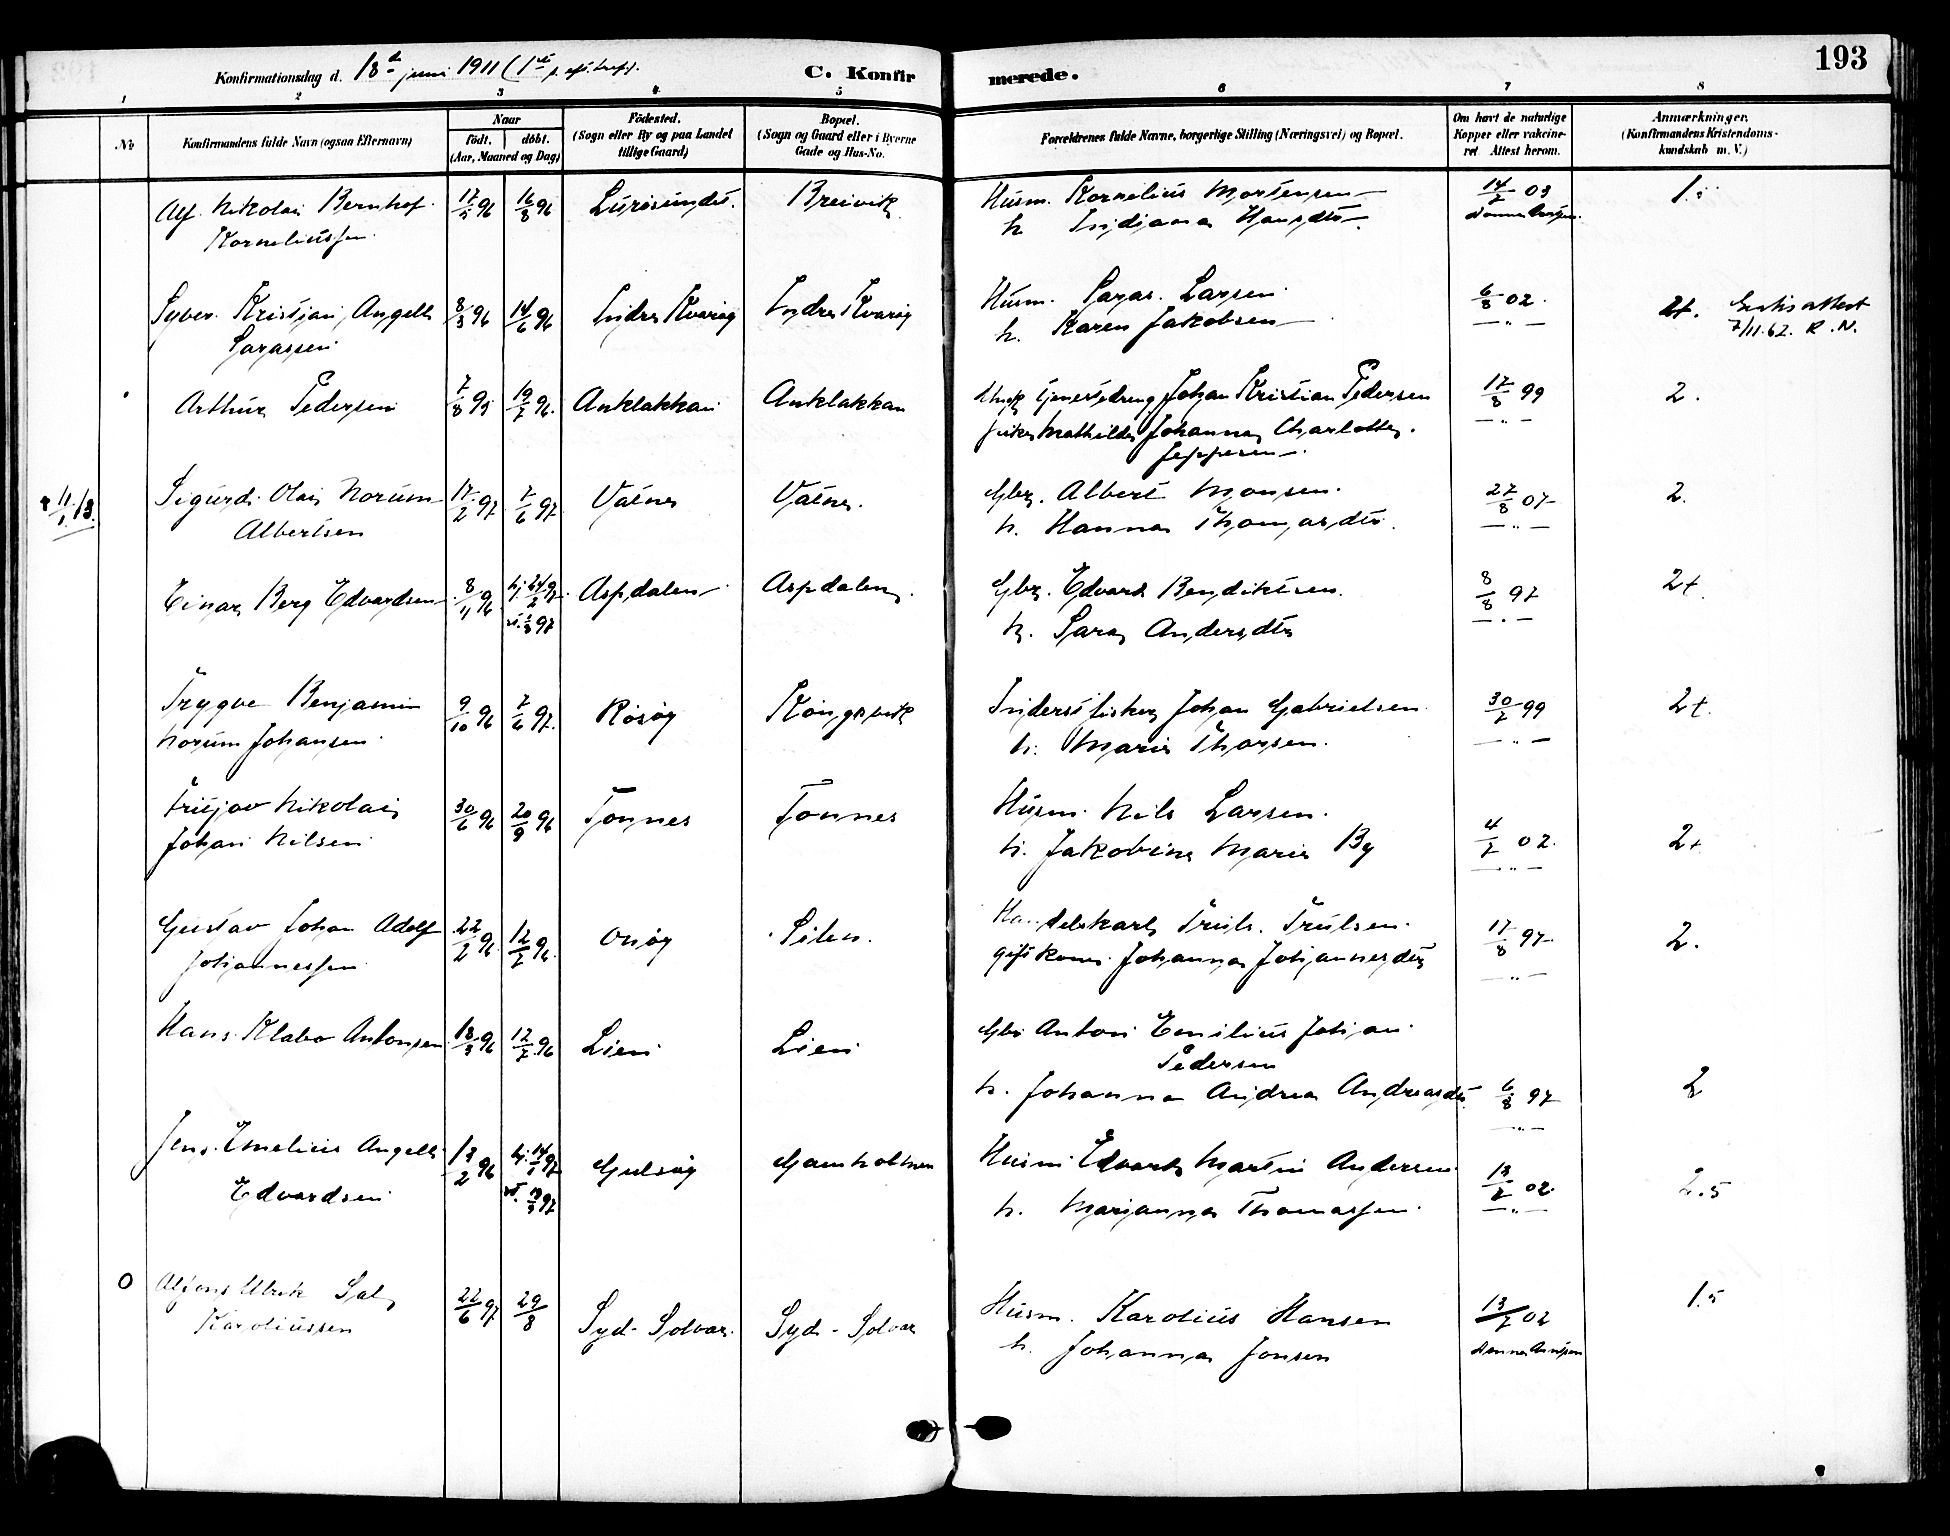 193
Konfirmationsdag d. 18de juni 1911 (1ste s. eft. trefs).
C. Konfirmerede.
1 2 3 4 5 6 7 8
No
Konfirmandens fulde Navn (ogsaa Efternavn)
Naar
födt. döbt.
(Aar, Maaned og Dag)
Födested.
(Sogn eller By og paa Landet
tillige Gaard)
Bopæl.
(Sogn og Gaard eller i Byerne
Gade og Hus-No.
Forældrenes fulde Navne, borgerlige Stilling (Næringsvei) og Bopæl.
Om havt de naturlige
Kopper eller vakcine-
ret Attest herom.
Anmærkninger.
(Konfirmandens Kristendoms-
kundskab m. V.)
Alf Nikolai Bernhof 17/5 96 16/8 96 Lurösundet Breivik Husm. Kornelius Mortensen 14/7 03 1.5
Korneliussen h. Indiana Hansdtr
Syver Kristian Angell 8/3 96 14/6 96 Indre Kvarøy Indre Kvarøy Husm. Saras Larsen 6/8 02 2+. Gratis attest
Sarassen h. Karen Jakobsen — " — 7/11.62. R.N.
Arthur Pedersen 7/8 95 19/7 96 Anklakkan Anklakkan Ungk. tjenestedreng Johan Kristian Pedersen 17/8 99 2.
pike Mathilde Johanna Charlotte — " —
Jeppesen
+ 11/1 13. Sigurd Olai Norum 17/2 97 7/6 97 Vatnes Vatnes Gbr. Albert Monsen 27/8 07 2.
Albertsen h. Hanna Thomasdtr — " —
Einar Berg Edvardsen 8/11 96 hj. 24/2 97 Aspdalen Aspdalen Gbr. Edvard Bendiktsen 8/8 97 2+
h. Sara Andersdtr — " —
Trygve Benjamin 9/10 96 7/6 97 Rösöy Kongsvik Inderst fisker Johan Gabrielsen 30/7 99 2+.
Norum Johansen h. Marie Thorsen — " —
Fritjov Nikolai 30/6 96 20/9 96 Tonnes Tonnes Husm. Nils Larsen
Johan Nilsen h. Jakobine Marie By 4/7 02. 2+
— " —
Gustav Johan Adolf 22/2 96 12/7 96 Onøy Silen Handelskarl Truls Trulsen 17/8 97 2.
Johannessen gift kone Johanna Johannesdtr — " —
Hans Klabo Antonsen 18/3 96 12/7 96 Lien Lien Gbr Anton Emilius Johan
Pedersen
h. Johanna Andrea Andreasdtr 6/8 97 2
— " —
Jens Emelius Angell 13/2 96 hj. 14/1 97 Gulsøy Gamholmen Husm Edvard Martin Andersen 13/7 02 2.5
Edvardsen h. Marianna Thomassen — " —
0 Alfons Ulrik Salg 22/6 97 29/8 Syd-Solvær Syd-Solvær Husm. Karolius Hansen 13/7 02 1.5
Karoliussen h. Johanna Jonsen